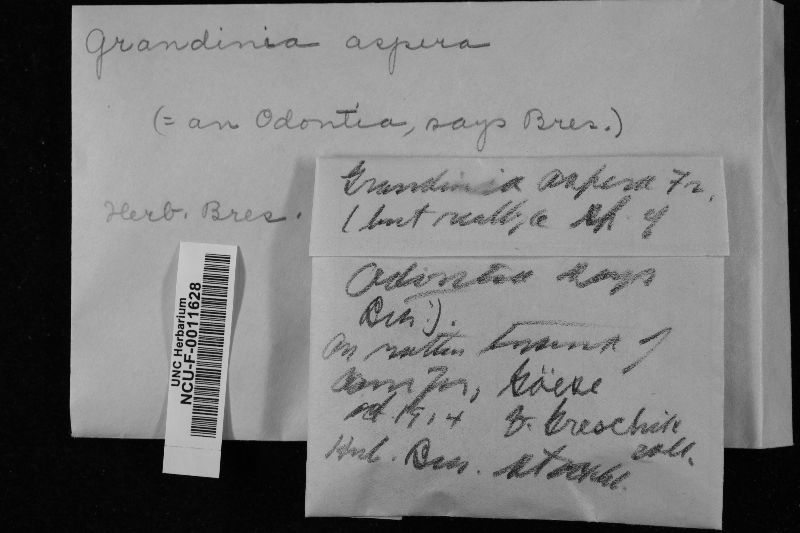 Grandinia aspera
(= an Odontia, says Bres.)
Herb. Bres.
UNC Herbarium
NCU-F-0011628
Grandinia aspera Fr.
(but really a sp. of
Odontia says
Bres.).
On rotten
Göese
Oct. 1914
coll.
Herb. Bres. at Stockh.